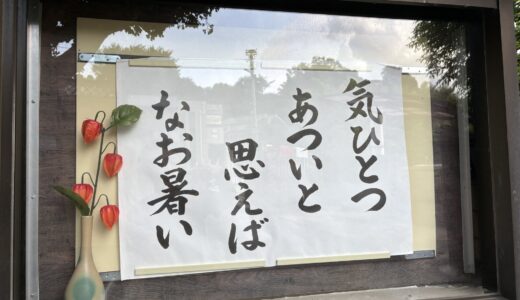 気ひとつ
あついと
思えば
なお暑い